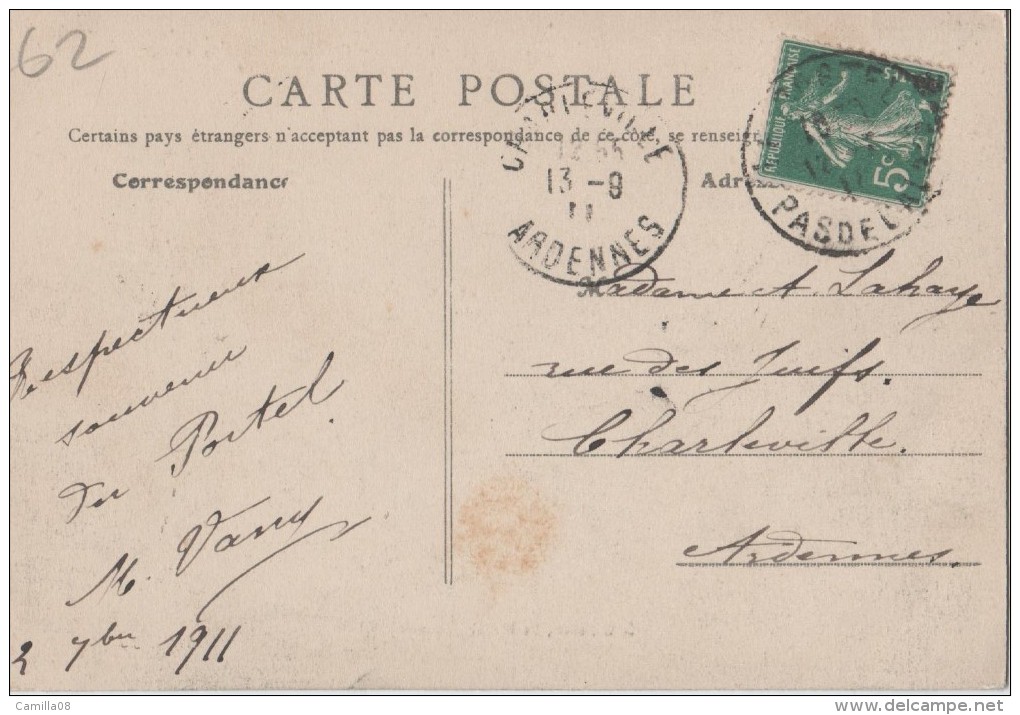 62
CARTE POSTALE
Certains pays étrangers n'acceptant pas la correspondance de ce côté, se renseig
Correspondance
Adres
CHARLEVILLE
13 -9
11
ARDENNES
PAS DE CALAIS
REPUBLIQUE FRANÇAISE
5c
Respectueux
souvenir
du Portel
M. Vany
7bre 1911
Madame A. Lahaye
rue des Juifs.
Charleville.
Ardennes.
Camilla08
delcampe.net